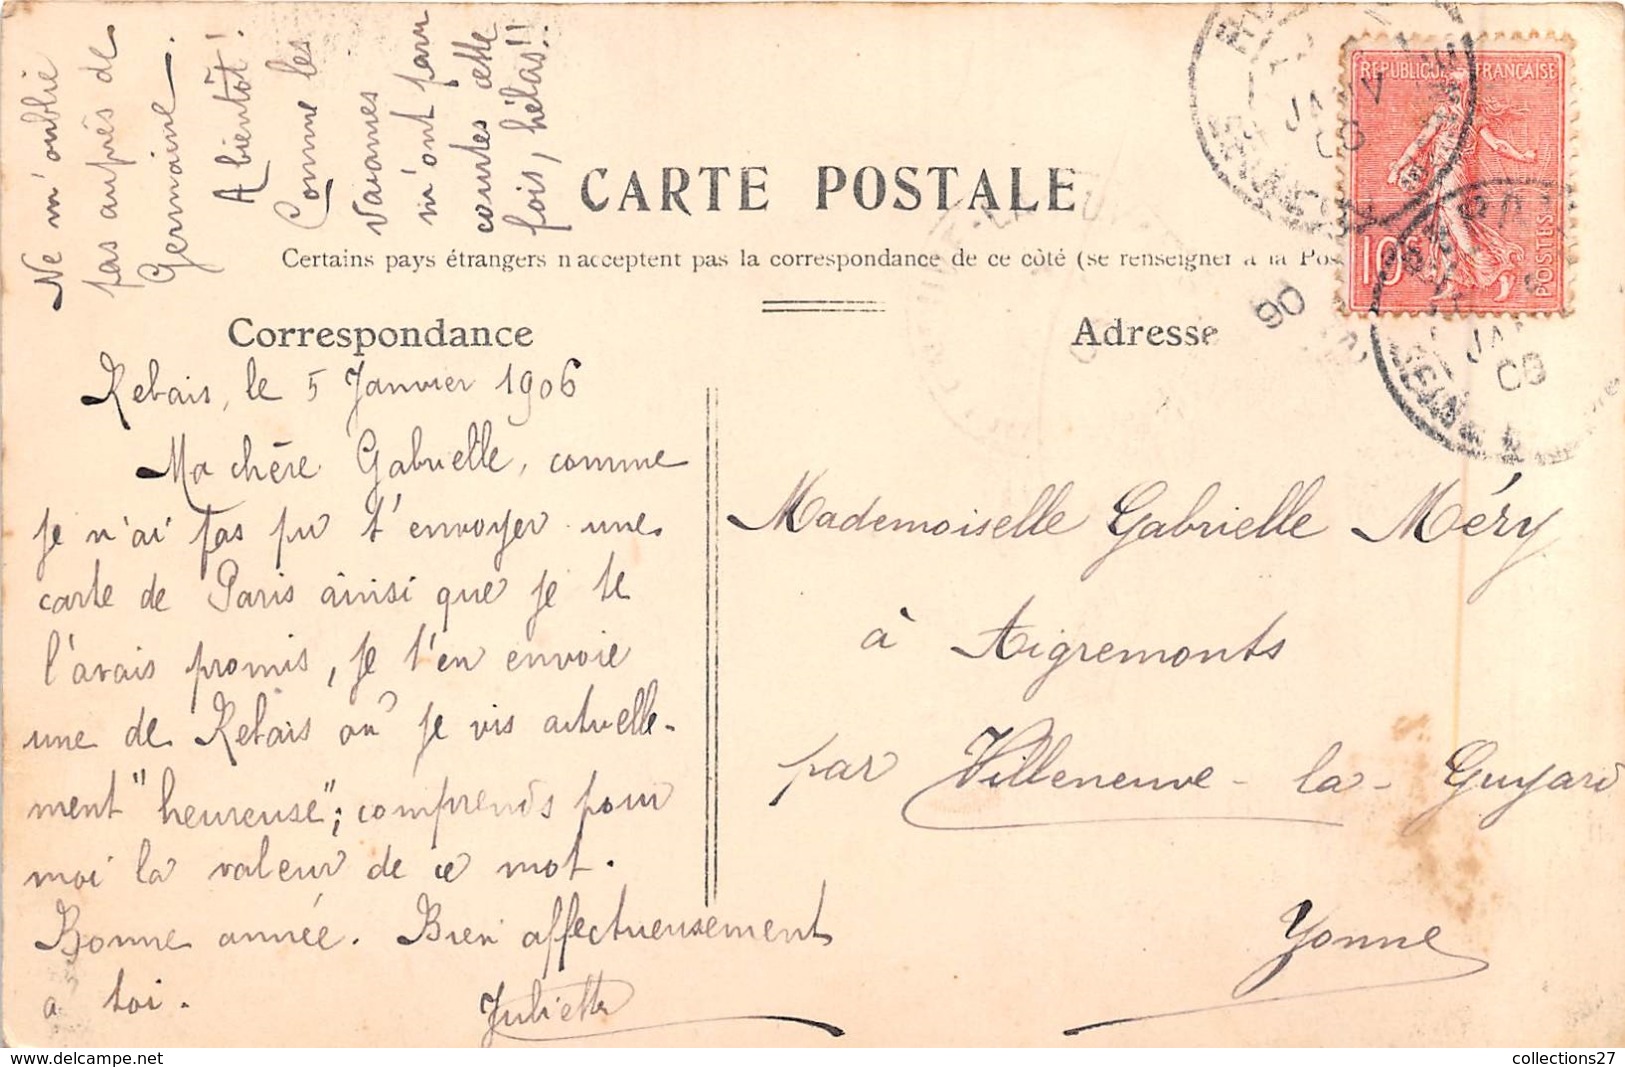 Ne m'oublie
pas auprès de
Germaine.
A bientôt!
Comme les
vacances
m'ont paru
courtes cette
fois, hélas!!
CARTE POSTALE
Certains pays étrangers n'acceptent pas la correspondance de ce côté (se renseigner à la Pos
Correspondance
Rebais, le 5 Janvier 1906
Ma chère Gabrielle, comme
je n'ai pas pu t'envoyer une
carte de Paris ainsi que je te
l'avais promis, je t'en envoie
une de Rebais où je vis actuelle-
ment "heureuse"; comprends pour
moi la valeur de ce mot.
Bonne année. Bien affectueusement
a toi.
Juliette
REPUBLIQUE FRANÇAISE
10c
POSTES
JANV
06
Adresse
JAN
06
Mademoiselle Gabrielle Méry
à Aigremonts
par Villeneuve-la-Guyard
Yonne
collections27